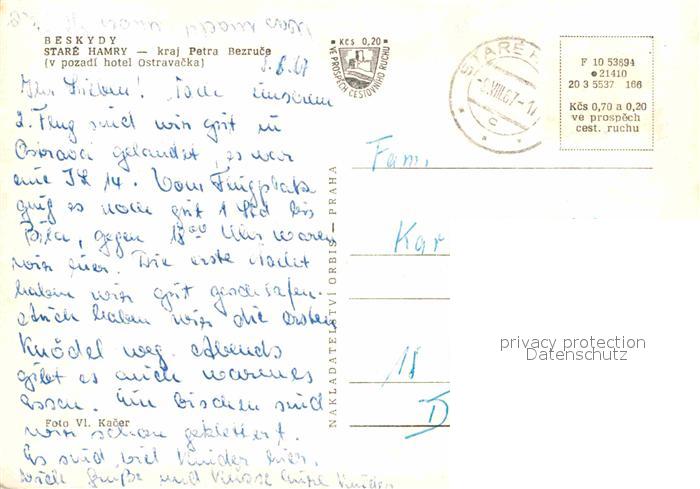 BESKYDY
STARÉ HAMRY — kraj Petra Bezruče
(v pozadí hotel Ostravačka)
5.8.67
Ihr Lieben! Nach unserem
2. Flug sind wir gut in
Ostrava gelandet, es war
eine IL 14. Vom Flugplatz
ging es noch gut 1 Std bis
Bila, gegen 18⁰⁰ Uhr waren
wir hier. Die erste Nacht
haben wir gut geschlafen.
Auch haben wir die ersten
Knödel weg. Abends
gibt es auch warmes
Essen. Ein bischen sind
wir schon geklettert.
Es sind viel Kinder hier.
Viele Grüße und Küsse Eure Kinder
Foto Vl. Kačer
NAKLADATELSTVÍ ORBIS — PRAHA
Kčs 0,20
VE PROSPĚCH CESTOVNÍHO RUCHU
STARÉ
VIII.67
c
F 10 53894
21410
20 3 5537 166
Kčs 0,70 a 0,20
ve prospěch
cest. ruchu
Fam.
Kar
18
D
privacy protection
Datenschutz